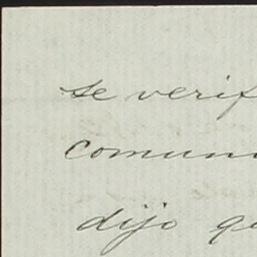 se verif
comuni
dijo qu